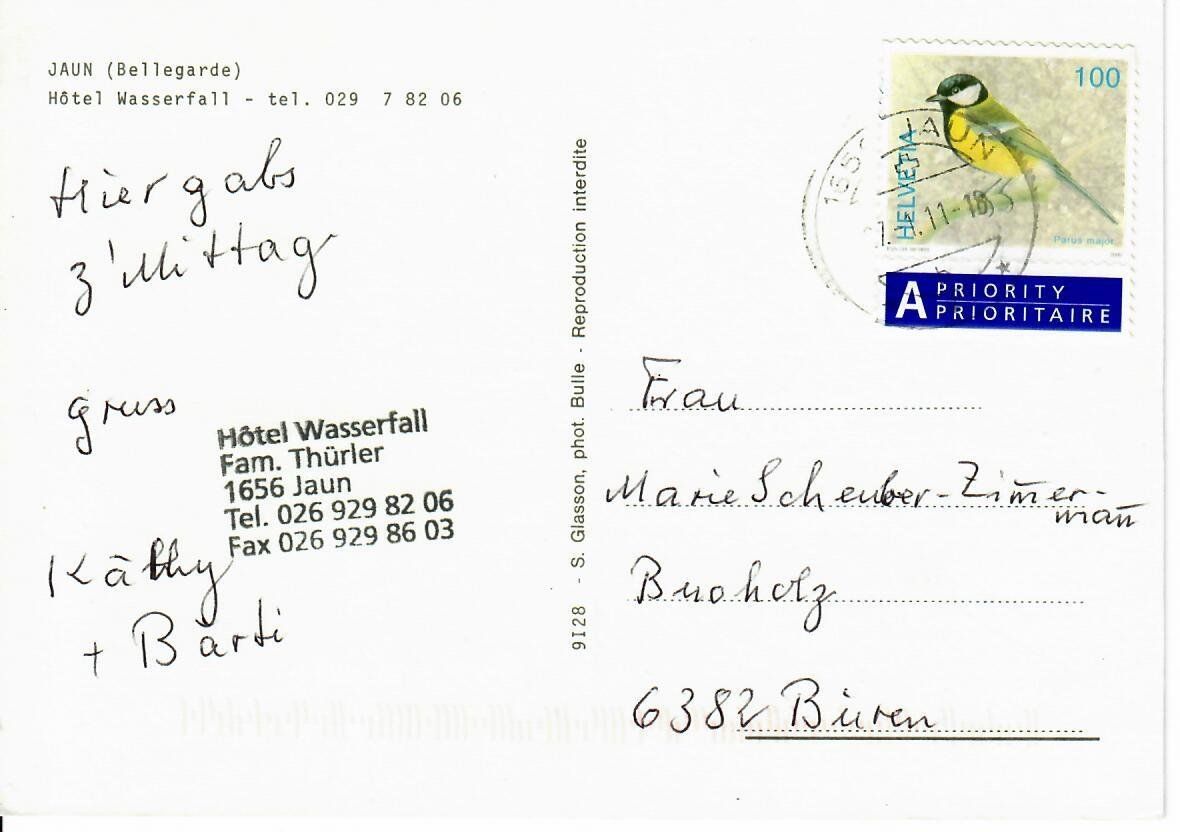 JAUN (Bellegarde)
Hôtel Wasserfall - tel. 029 7 82 06
Hier gabs
z'Mittag
gruss
Hôtel Wasserfall
Fam. Thürler
1656 Jaun
Tel. 026 929 82 06
Fax 026 929 86 03
Käthy
+ Bärti
9128 - S. Glasson, phot. Bulle - Reproduction interdite
100
HELVETIA
Parus major
JAUN
11-18
A PRIORITY
PRIORITAIRE
Frau
Marie Scheuber-Zim̅er-
man̅
Buoholz
6382 Büren